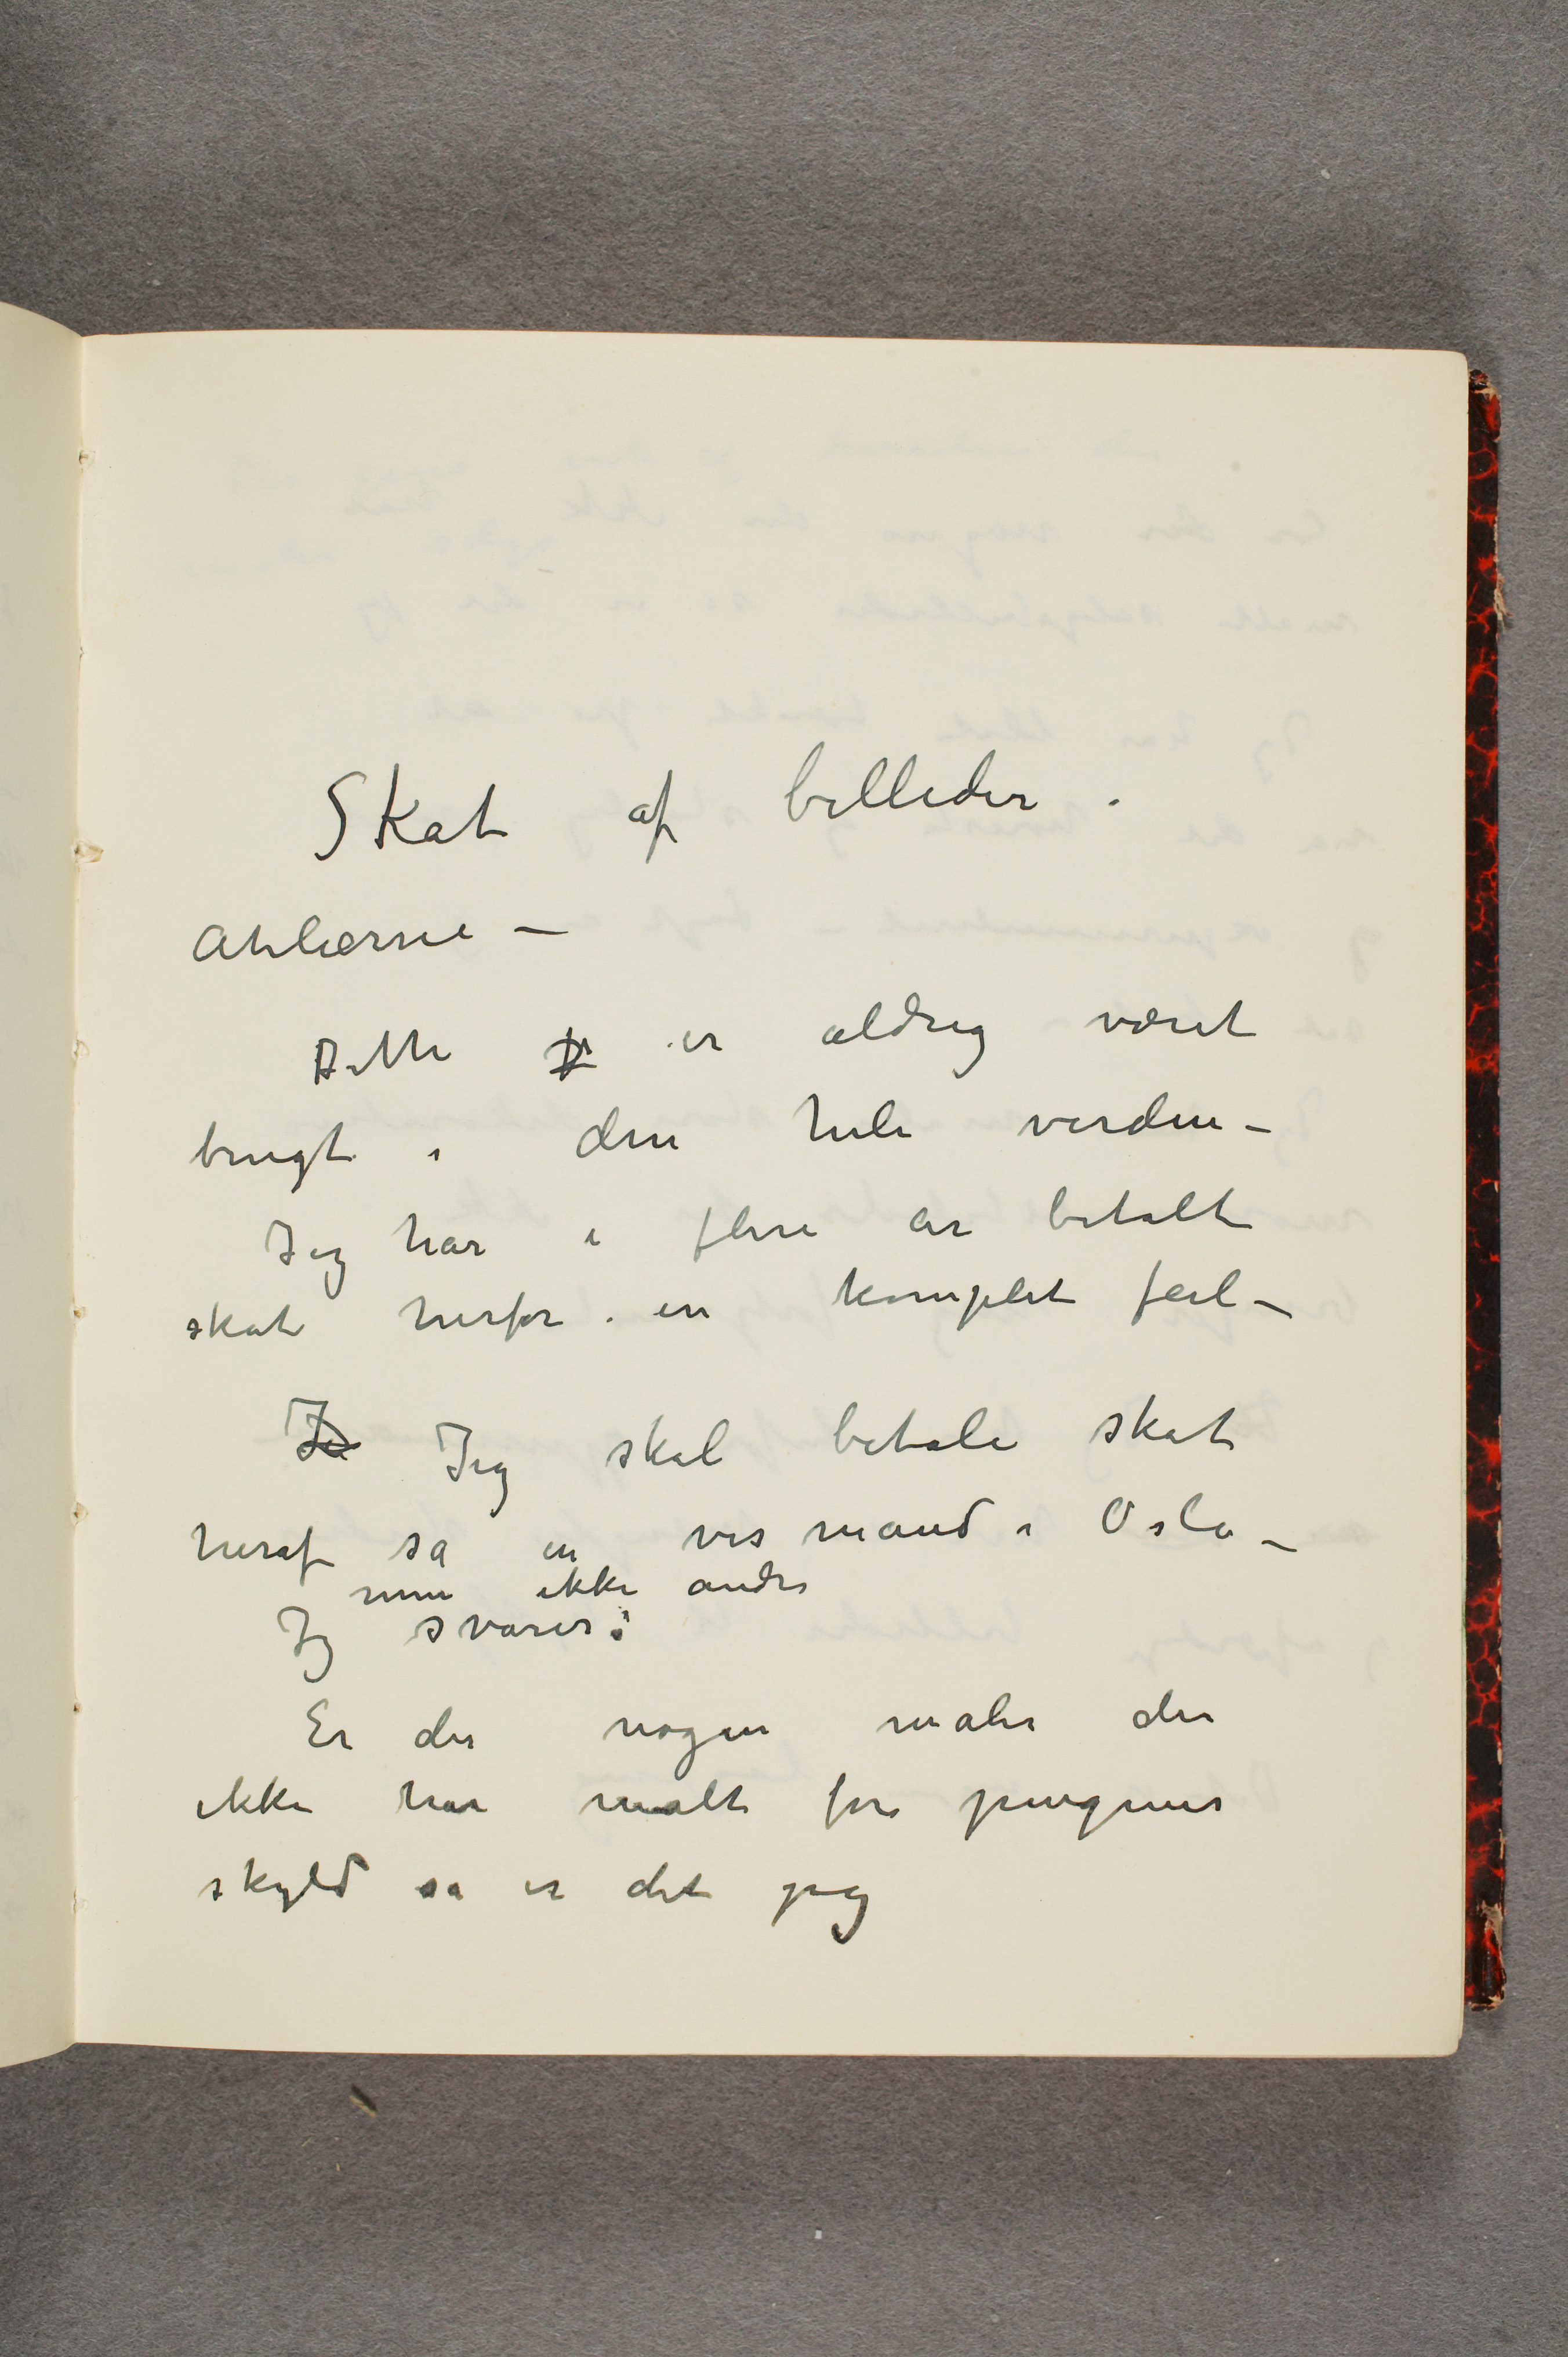 Skat af billeder.
Atelierne –
Dette er aldrig været
brugt i den hele verden –
Jeg har i flere år betalt
skat herfor. en komplet feil –
Je Jeg skal betale skat
heraf sa en vis mand i Oslo –
men ikke andre
Jeg svarer:
Er der nogen maler der
ikke har malt for pengenes
skyld så er det jeg